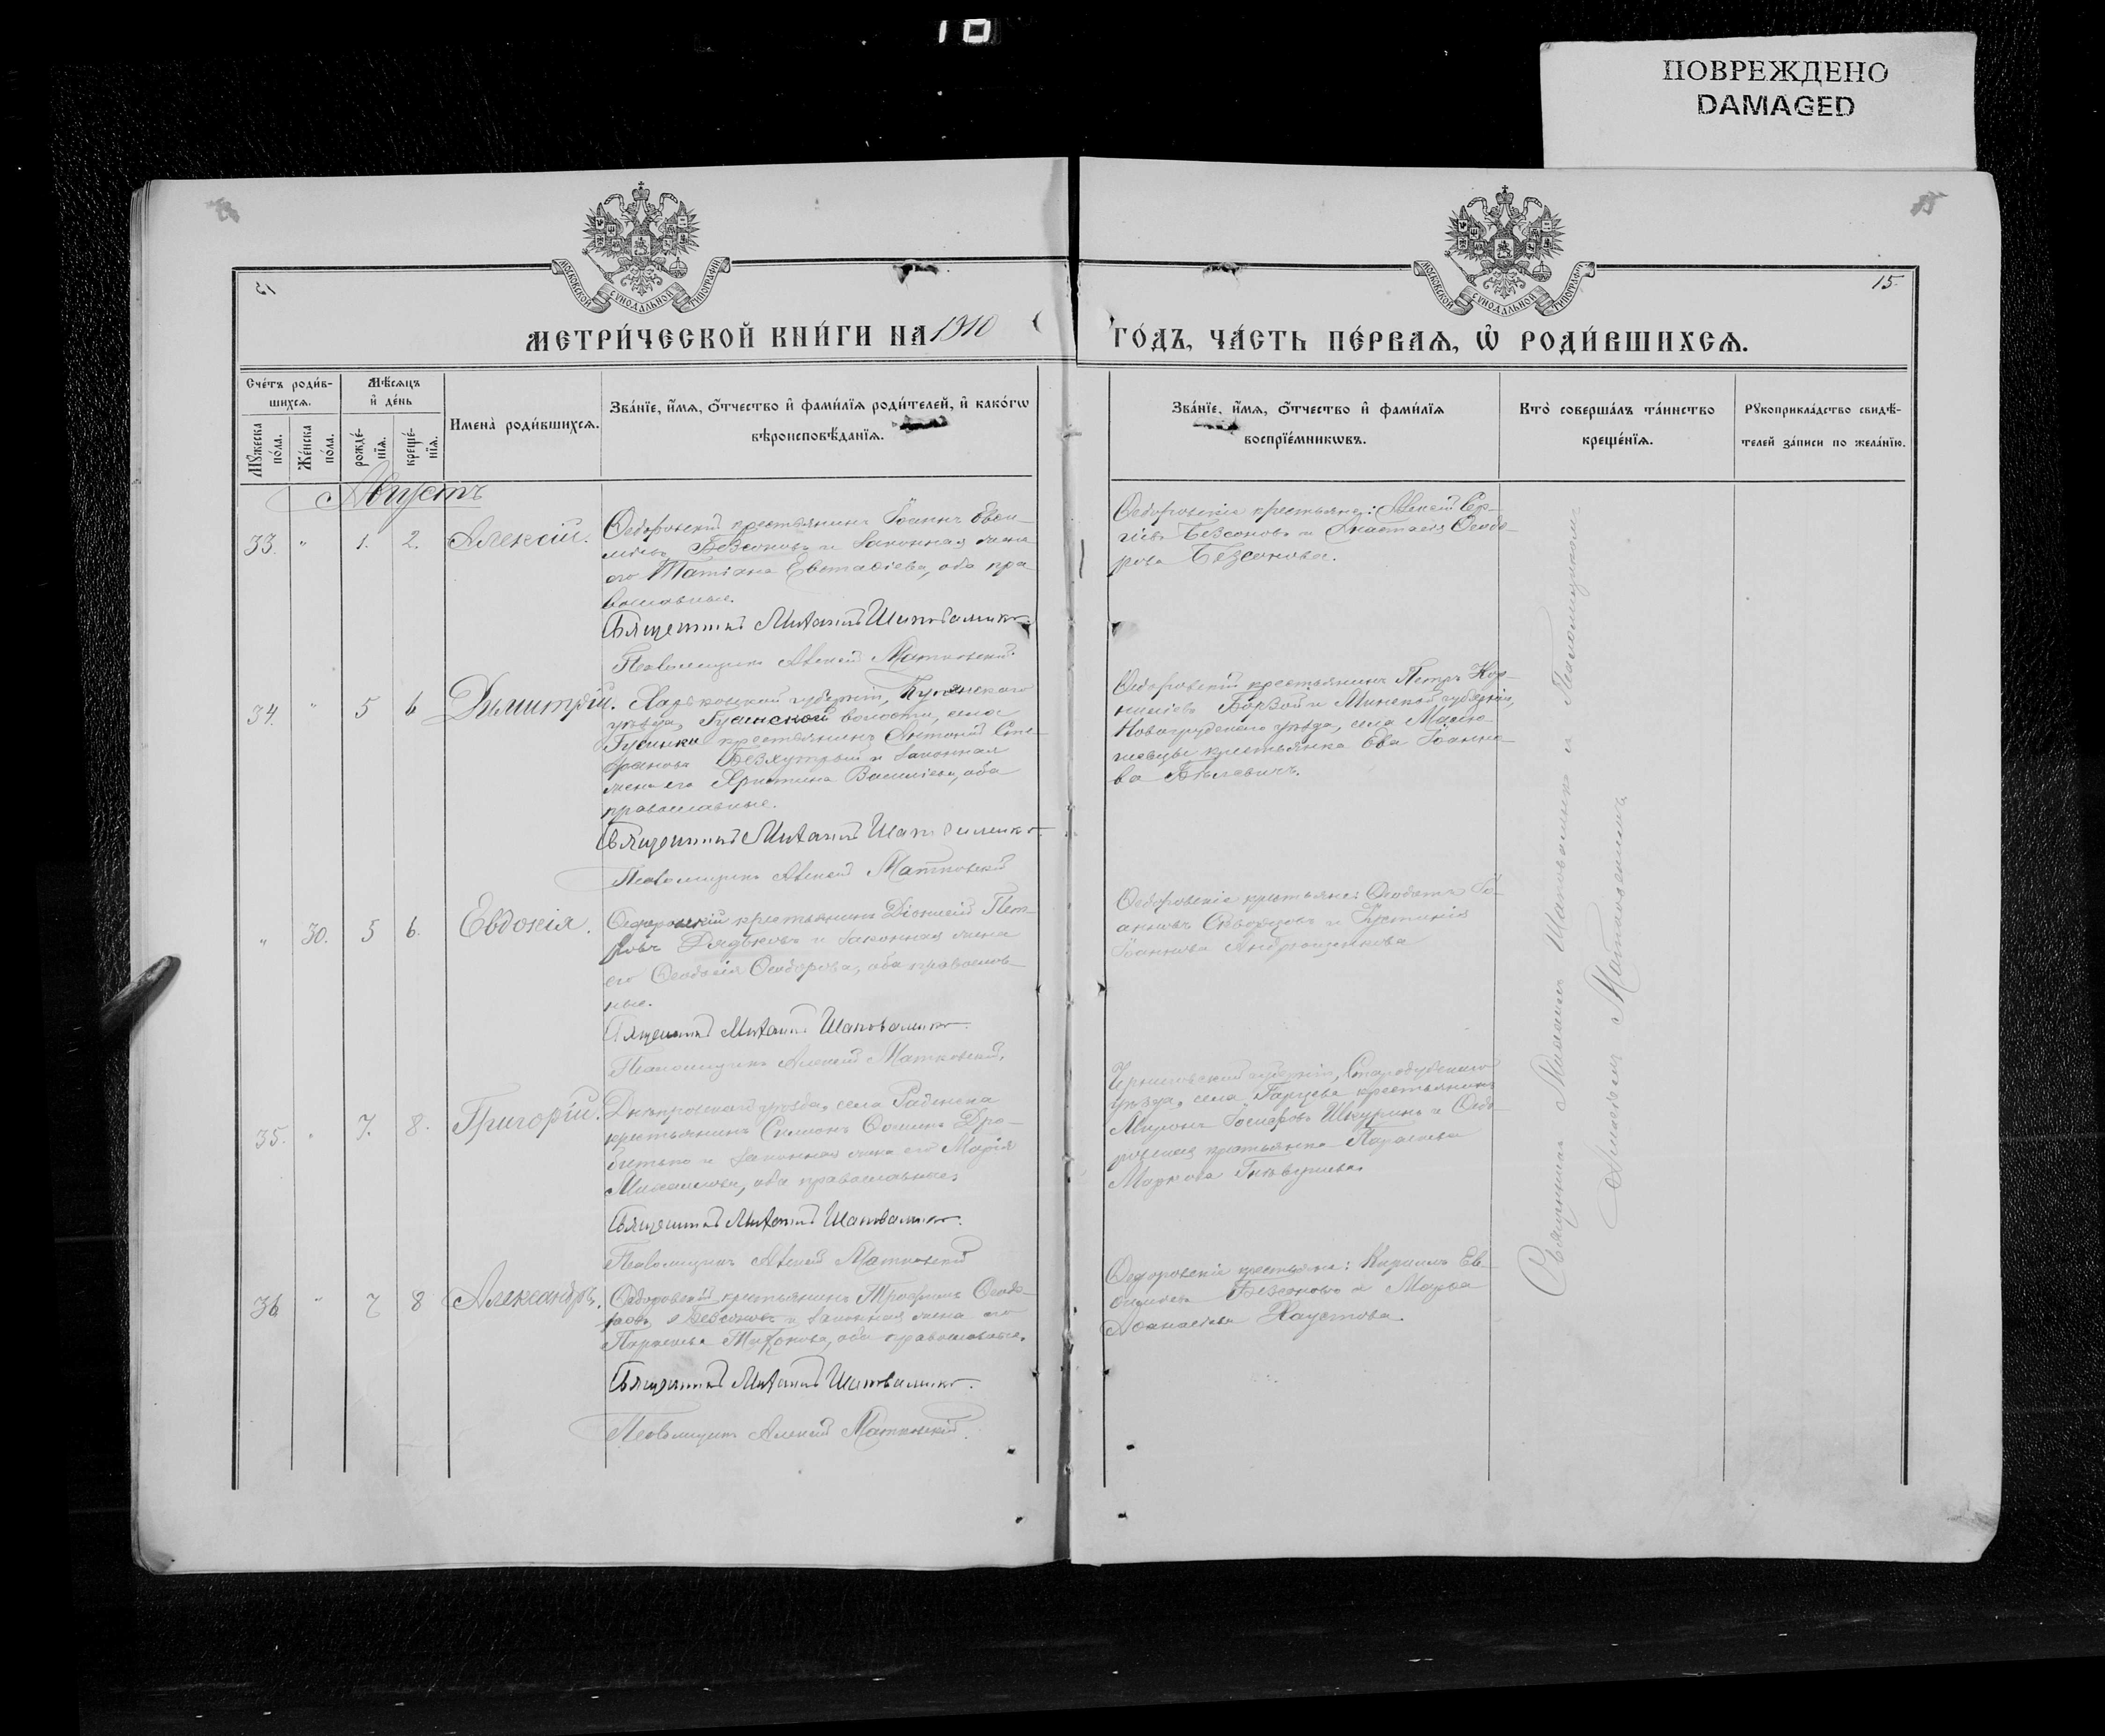 10
ПОВРЕЖДЕНО
DAMAGED
МОСКОВСКОЙ СѴНОДАЛЬНОЙ ТИПОГРАФІИ
МОСКОВСКОЙ СѴНОДАЛЬНОЙ ТИПОГРАФІИ
15.
МЕТРИ́ЧЕСКОЙ КНИ́ГИ НА 1910
ГО́ДЪ, ЧА́СТЬ ПЕ́РВАѦ, Ѡ҆ РОДИ́ВШИХСѦ.
Сче́тъ роди́в-
шихсѧ.
Мѣ́сѧцъ
и҆ де́нь
Мꙋ́жеска
по́ла.
Же́нска
по́ла.
рожде́-
нїѧ.
креще́-
нїѧ.
Имена̀ роди́вшихсѧ.
Зва́нїе, и҆́мѧ, ѻ҆́тчество и҆ фами́лїѧ роди́телей, и҆ како́гѡ
вѣроисповѣ́данїѧ.
Зва́нїе, и҆́мѧ, ѻ҆́тчество и҆ фами́лїѧ
воспрїе́мникѡвъ.
Кто̀ соверша́лъ та́инство
креще́нїѧ.
Рꙋкоприкла́дство свидѣ́-
телей за́писи по жела́нїю.
Августъ
33. " 1. 2. Алексій.
Ѳедоровскій крестьянинъ Іоаннъ Евси-
міевъ Безсоновъ и законная жена
его Татіана Евстафіева, оба пра-
вославные.
Священникъ Михаилъ Шаповаленко.
Псаломщикъ Алексій Матковскій.
Ѳедоровскіе крестьяне: Алексій Сер-
гіевъ Безсоновъ и Анастасія Ѳеодо-
рова Безсонова.
34. " 5 6 Димитрій.
Харьковской губерніи, Купянскаго
уѣзда, Гусинской волости, села
Гусинки крестьянинъ Антоній Сте-
фановъ Безхутрый и законная
жена его Христина Василіева, оба
православные.
Священникъ Михаилъ Шаповаленко.
Псаломщикъ Алексій Матковскій
Ѳедоровскій крестьянинъ Петръ Кор-
ниліевъ Борзой и Минской губерніи,
Новогрудскаго уѣзда, села
крестьянка Ева Іоанно-
ва Бѣлевичъ.
" 30. 5 6. Евдокія.
Ѳедоровскій крестьянинъ Діонисій Пет-
ровъ Дядьковъ и законная жена
его Ѳеодосія Ѳеодорова, оба православ-
ные.
Священникъ Михаилъ Шаповаленко.
Псаломщикъ Алексій Матковскій.
Ѳедоровскіе крестьяне: Ѳеодотъ Іо-
анновъ Скворцовъ и Іустинія
Іоаннова Андрющенкова
35. " 7. 8. Григорій.
Днѣпровскаго уѣзда, села Раденска
крестьянинъ Симеонъ Ѳоминъ Дро-
битько и законная жена его Марія
Михаилова, оба православные.
Священникъ Михаилъ Шаповаленко.
Псаломщикъ Алексій Матковскій
Черниговской губерніи, Стародубскаго
уѣзда, села Гарцева крестьянинъ
Миронъ Іосифовъ Шкуринъ и Ѳедо-
ровская крестьянка Параскева
Маркова
36 " 7 8 Александръ.
Ѳедоровскій крестьянинъ Трофимъ Ѳеодо-
ровъ Безсоновъ и законная жена его
Параскева Тихонова, оба православные.
Священникъ Михаилъ Шаповаленко.
Псаломщикъ Алексій Матковскій.
Ѳедоровскіе крестьяне: Кириллъ Ев-
симіевъ Безсоновъ и Марѳа
Аѳанасіева Хаустова.
Священникъ Михаилъ Шаповаленко и Псаломщикомъ
Алексіемъ Матковскимъ.